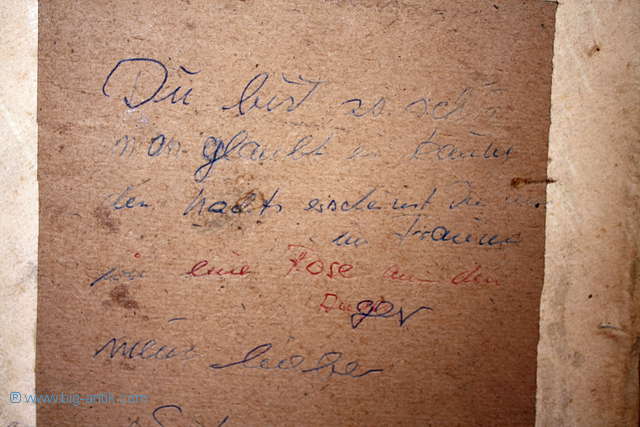 Du bist so schön
man glaubt es kaum
den Nachts erscheinst Du
im Traum
wie eine Rose aus den
Augen
mein lieber
® www.big-antik.com